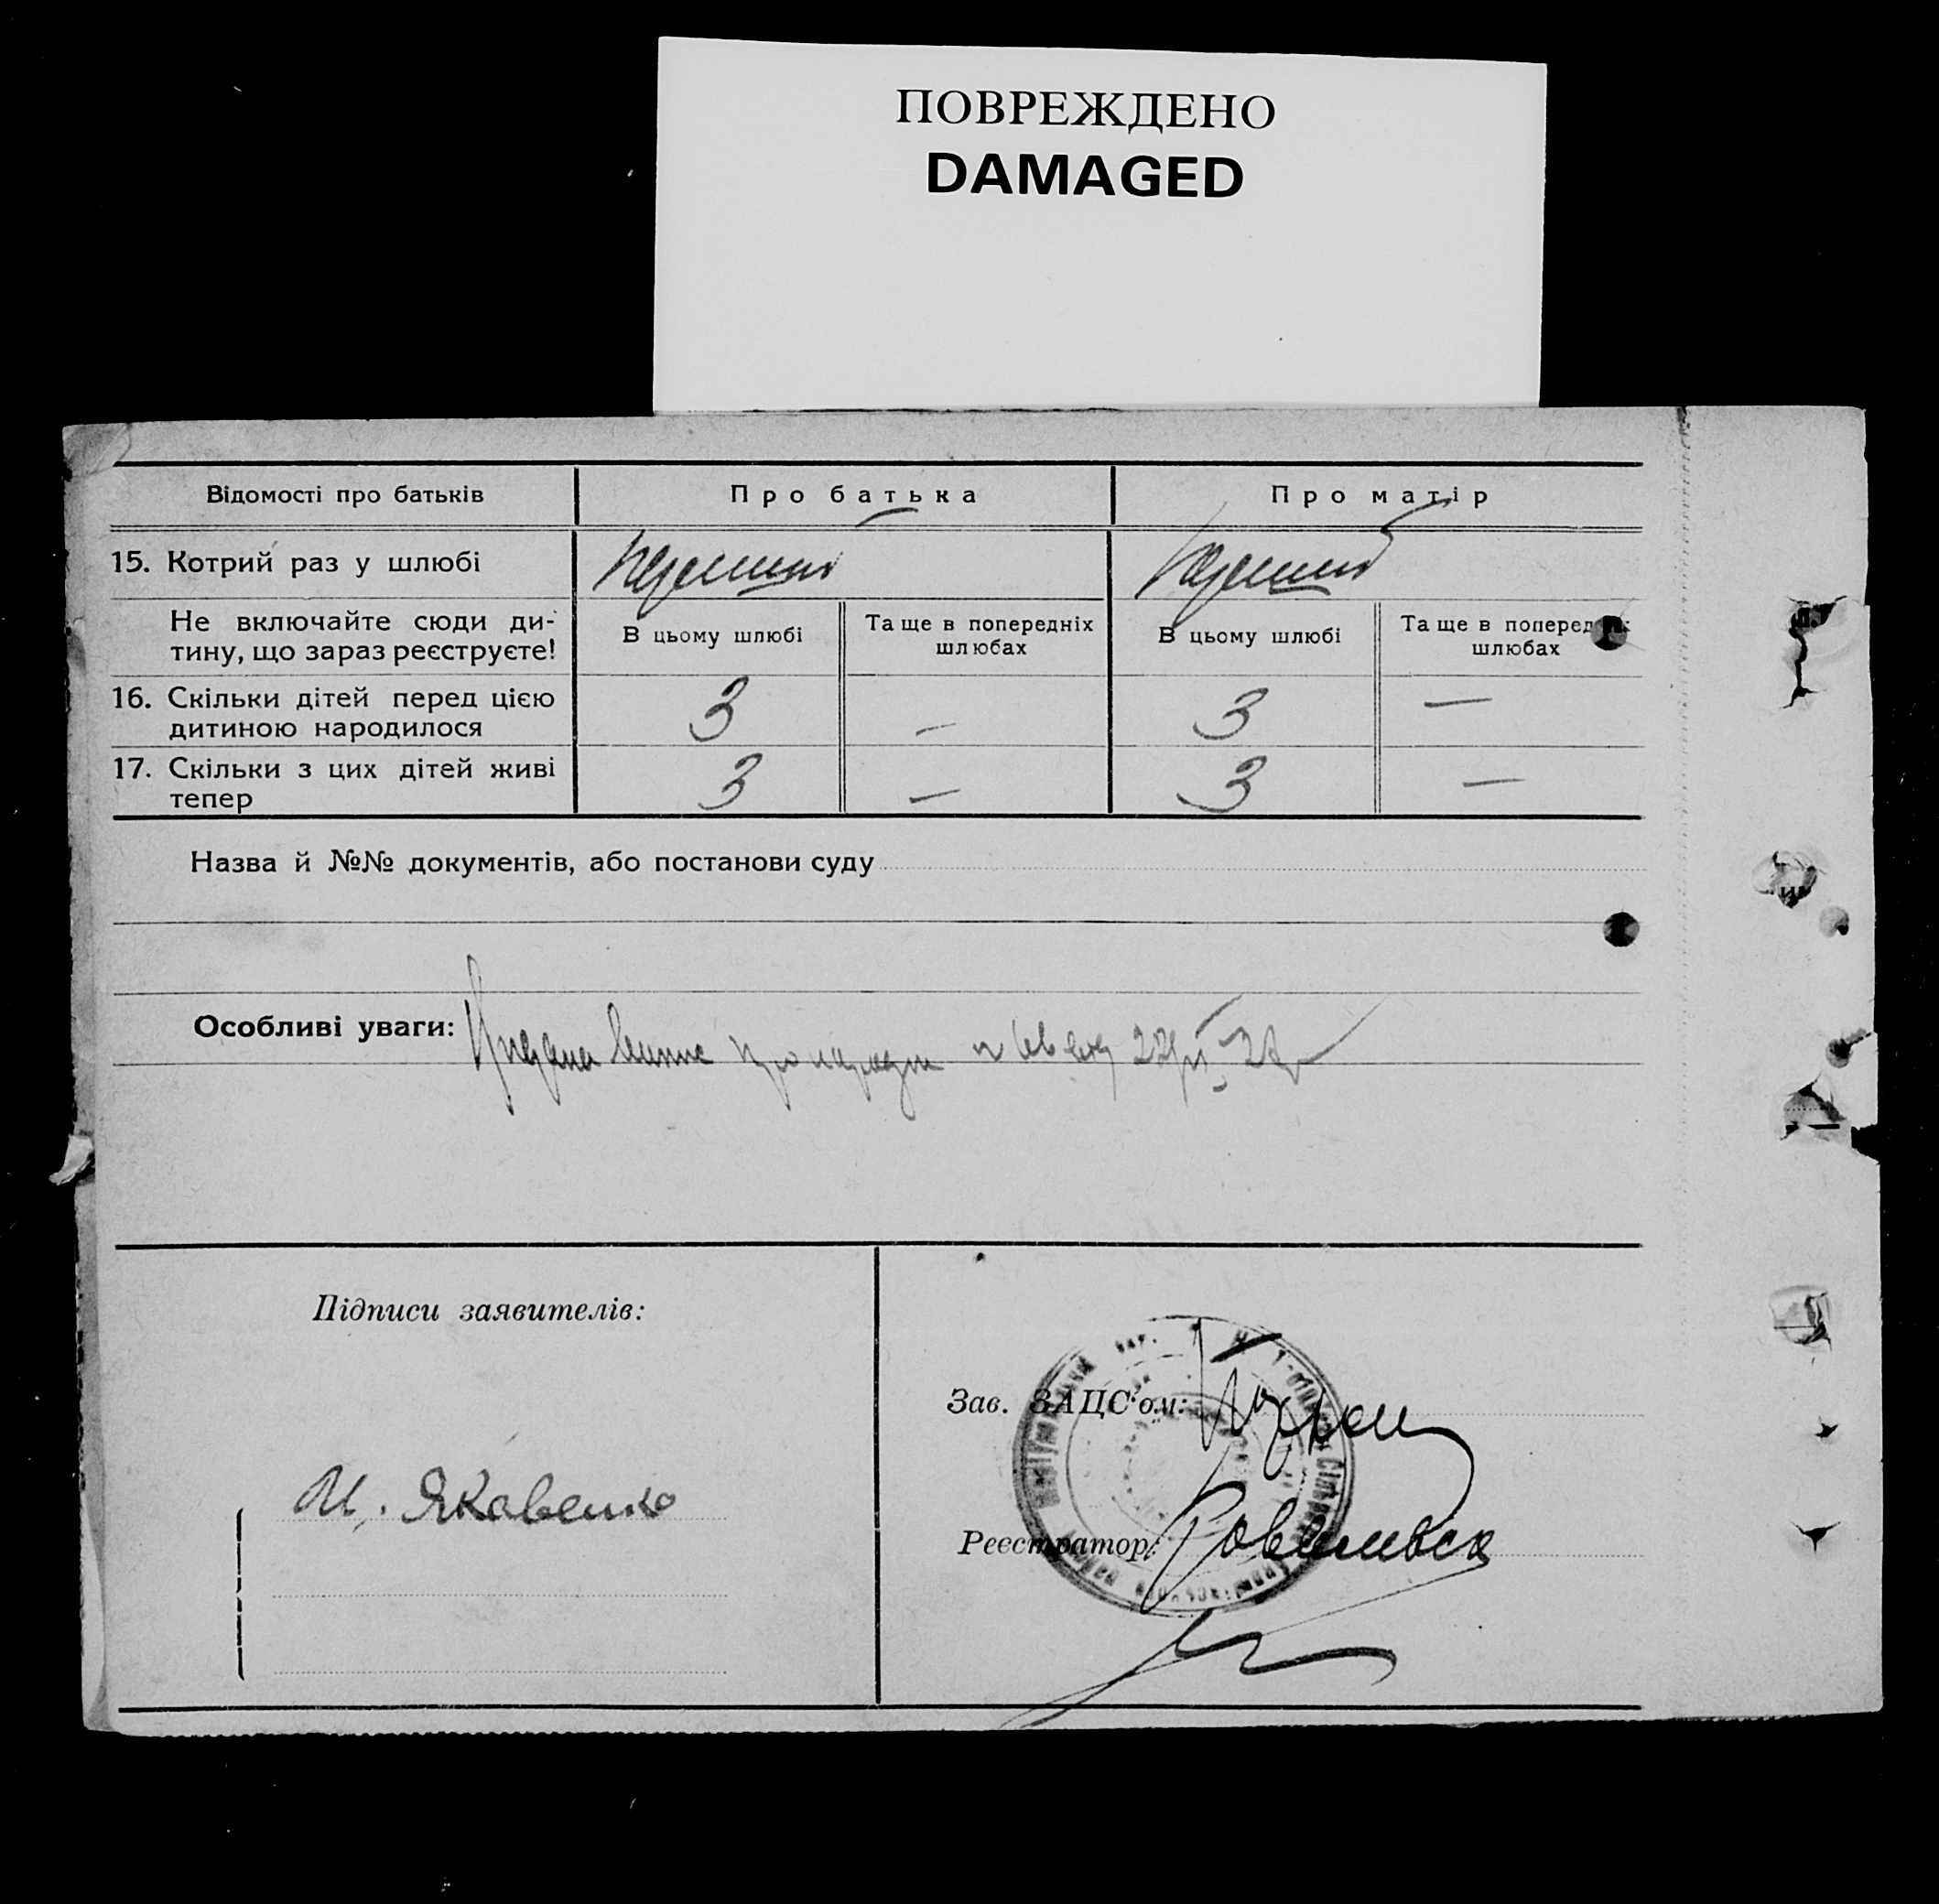 ПОВРЕЖДЕНО
DAMAGED
Відомості про батьків
Про батька
Про матір
15. Котрий раз у шлюбі
Не включайте сюди ди-
тину, що зараз реєструєте!
В цьому шлюбі
Та ще в попередніх
шлюбах
В цьому шлюбі
Та ще в поперед
шлюбах
16. Скільки дітей перед цією
дитиною народилося
3
–
3
–
17. Скільки з цих дітей живі
тепер
3
–
3
–
Назва й №№ документів, або постанови суду
Особливі уваги:
Підписи заявителів:
Зав. ЗАЦС'ом:
И. Яковенко
Реєстратор: